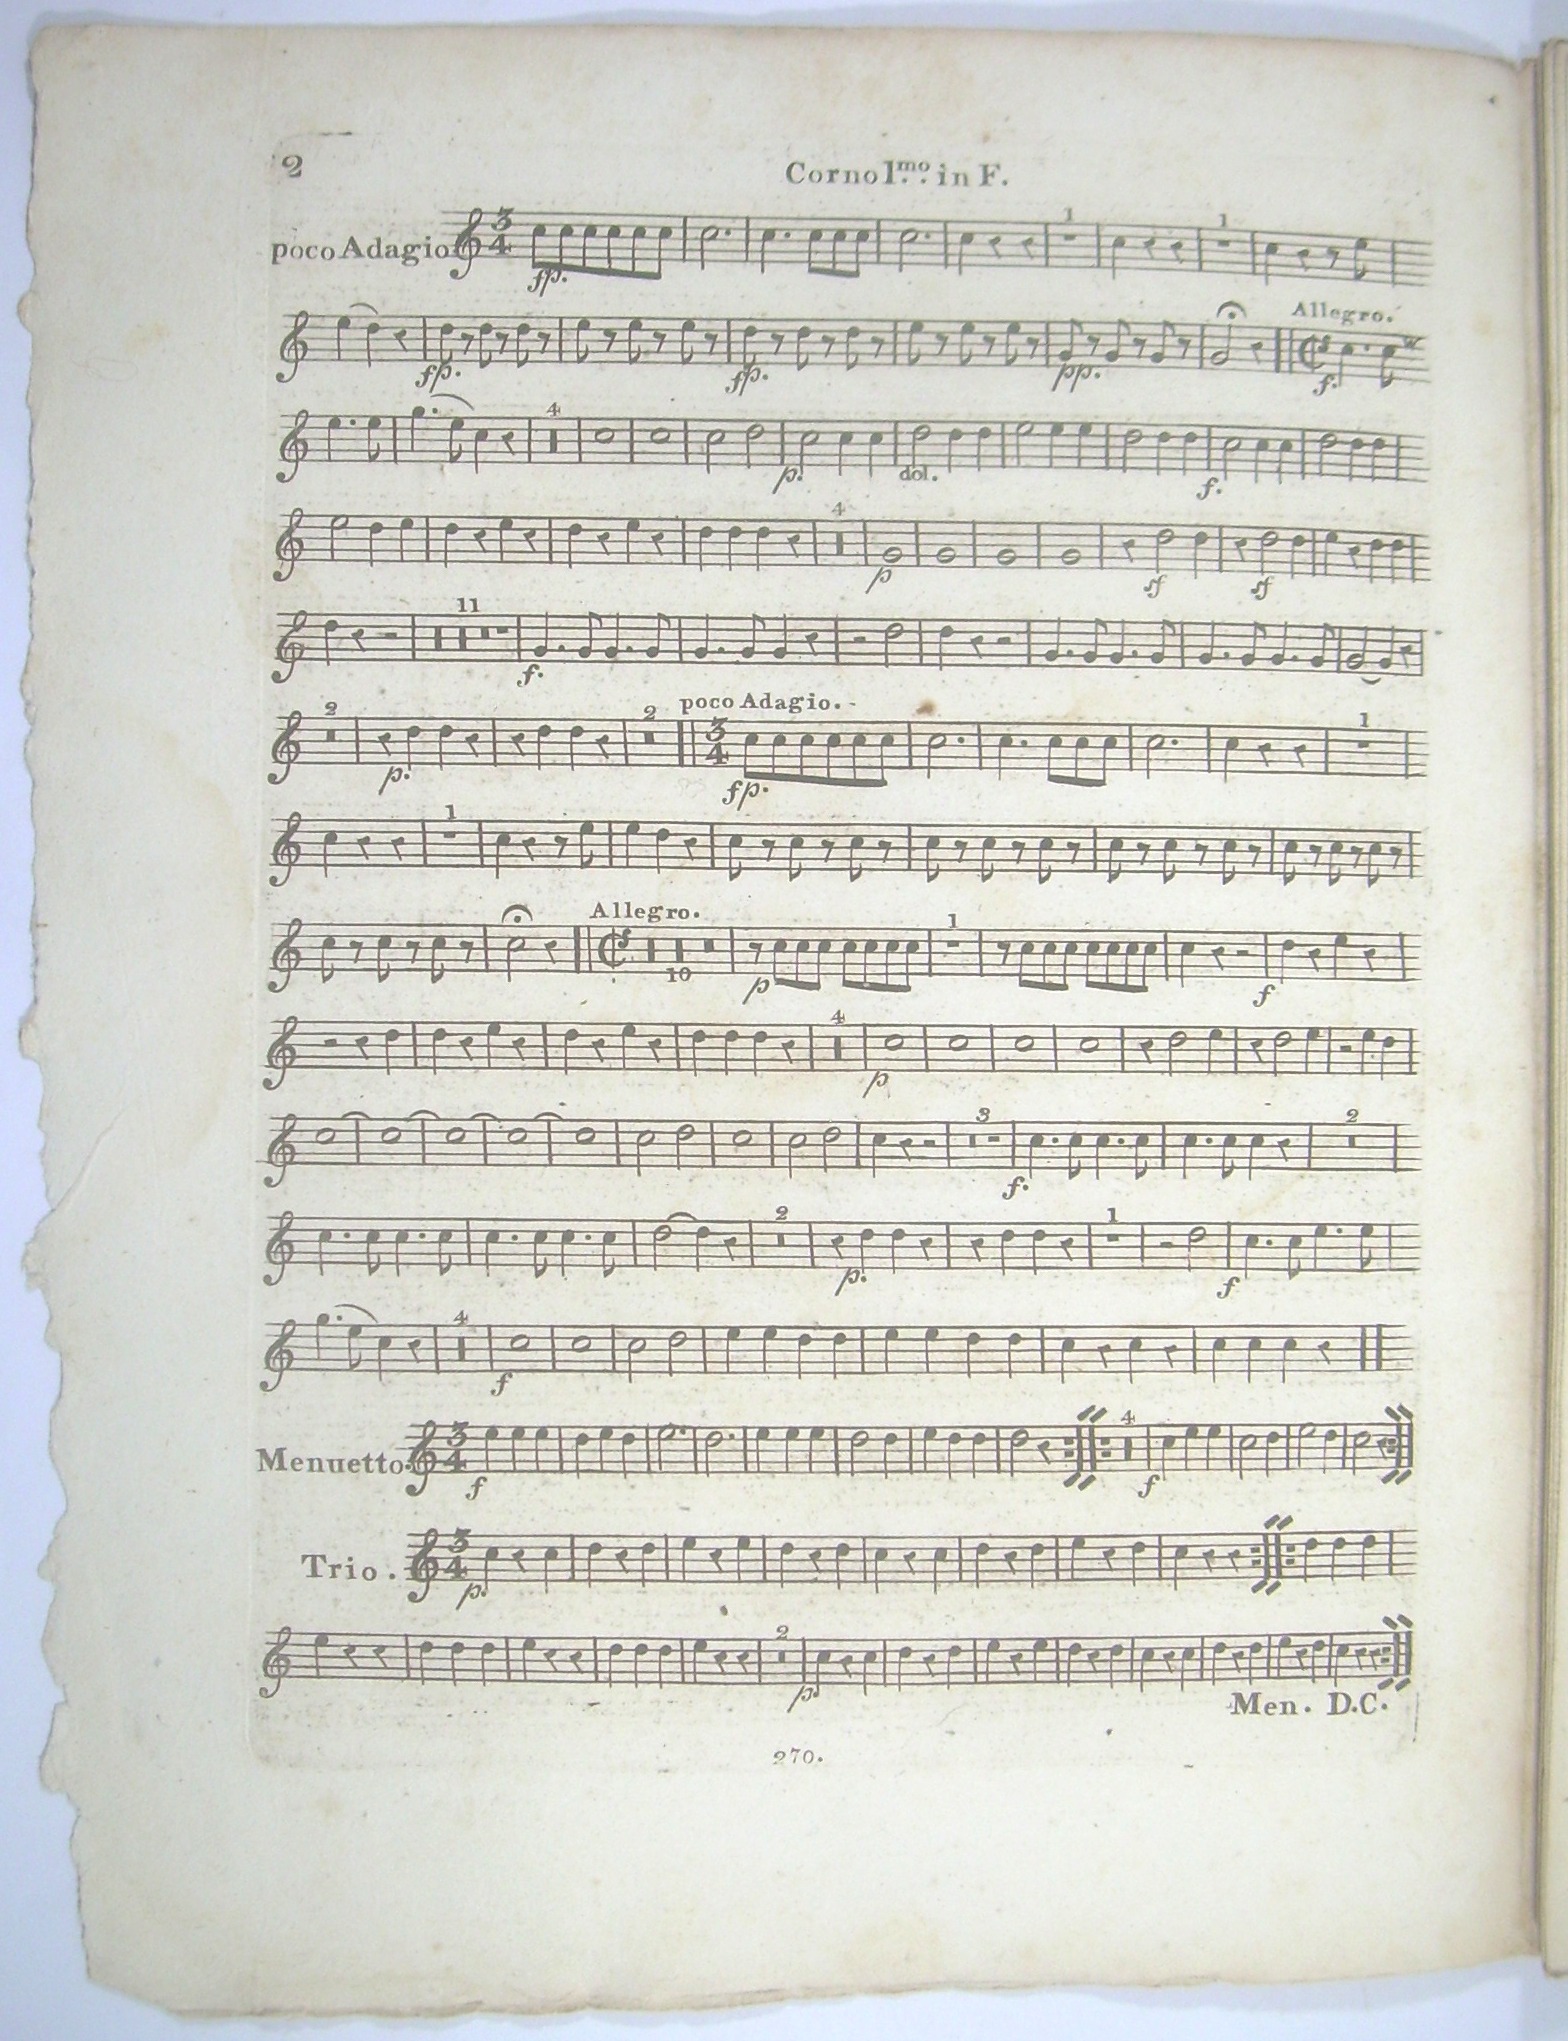 2
Corno 1.mo in F.
poco Adagio
3/4
1 1
fp.
Allegro.
fp. fp. pp. f.
4
p. dol. f.
4
p sf sf
11
f.
2 2 poco Adagio.
3/4
p. fp.
1
1
Allegro.
1
10
p f
4
p
3 2
f.
2 1
p. f
4
f
Menuetto.
3/4
4
f f
Trio.
3/4
p.
2
p.
Men. D.C.
270.